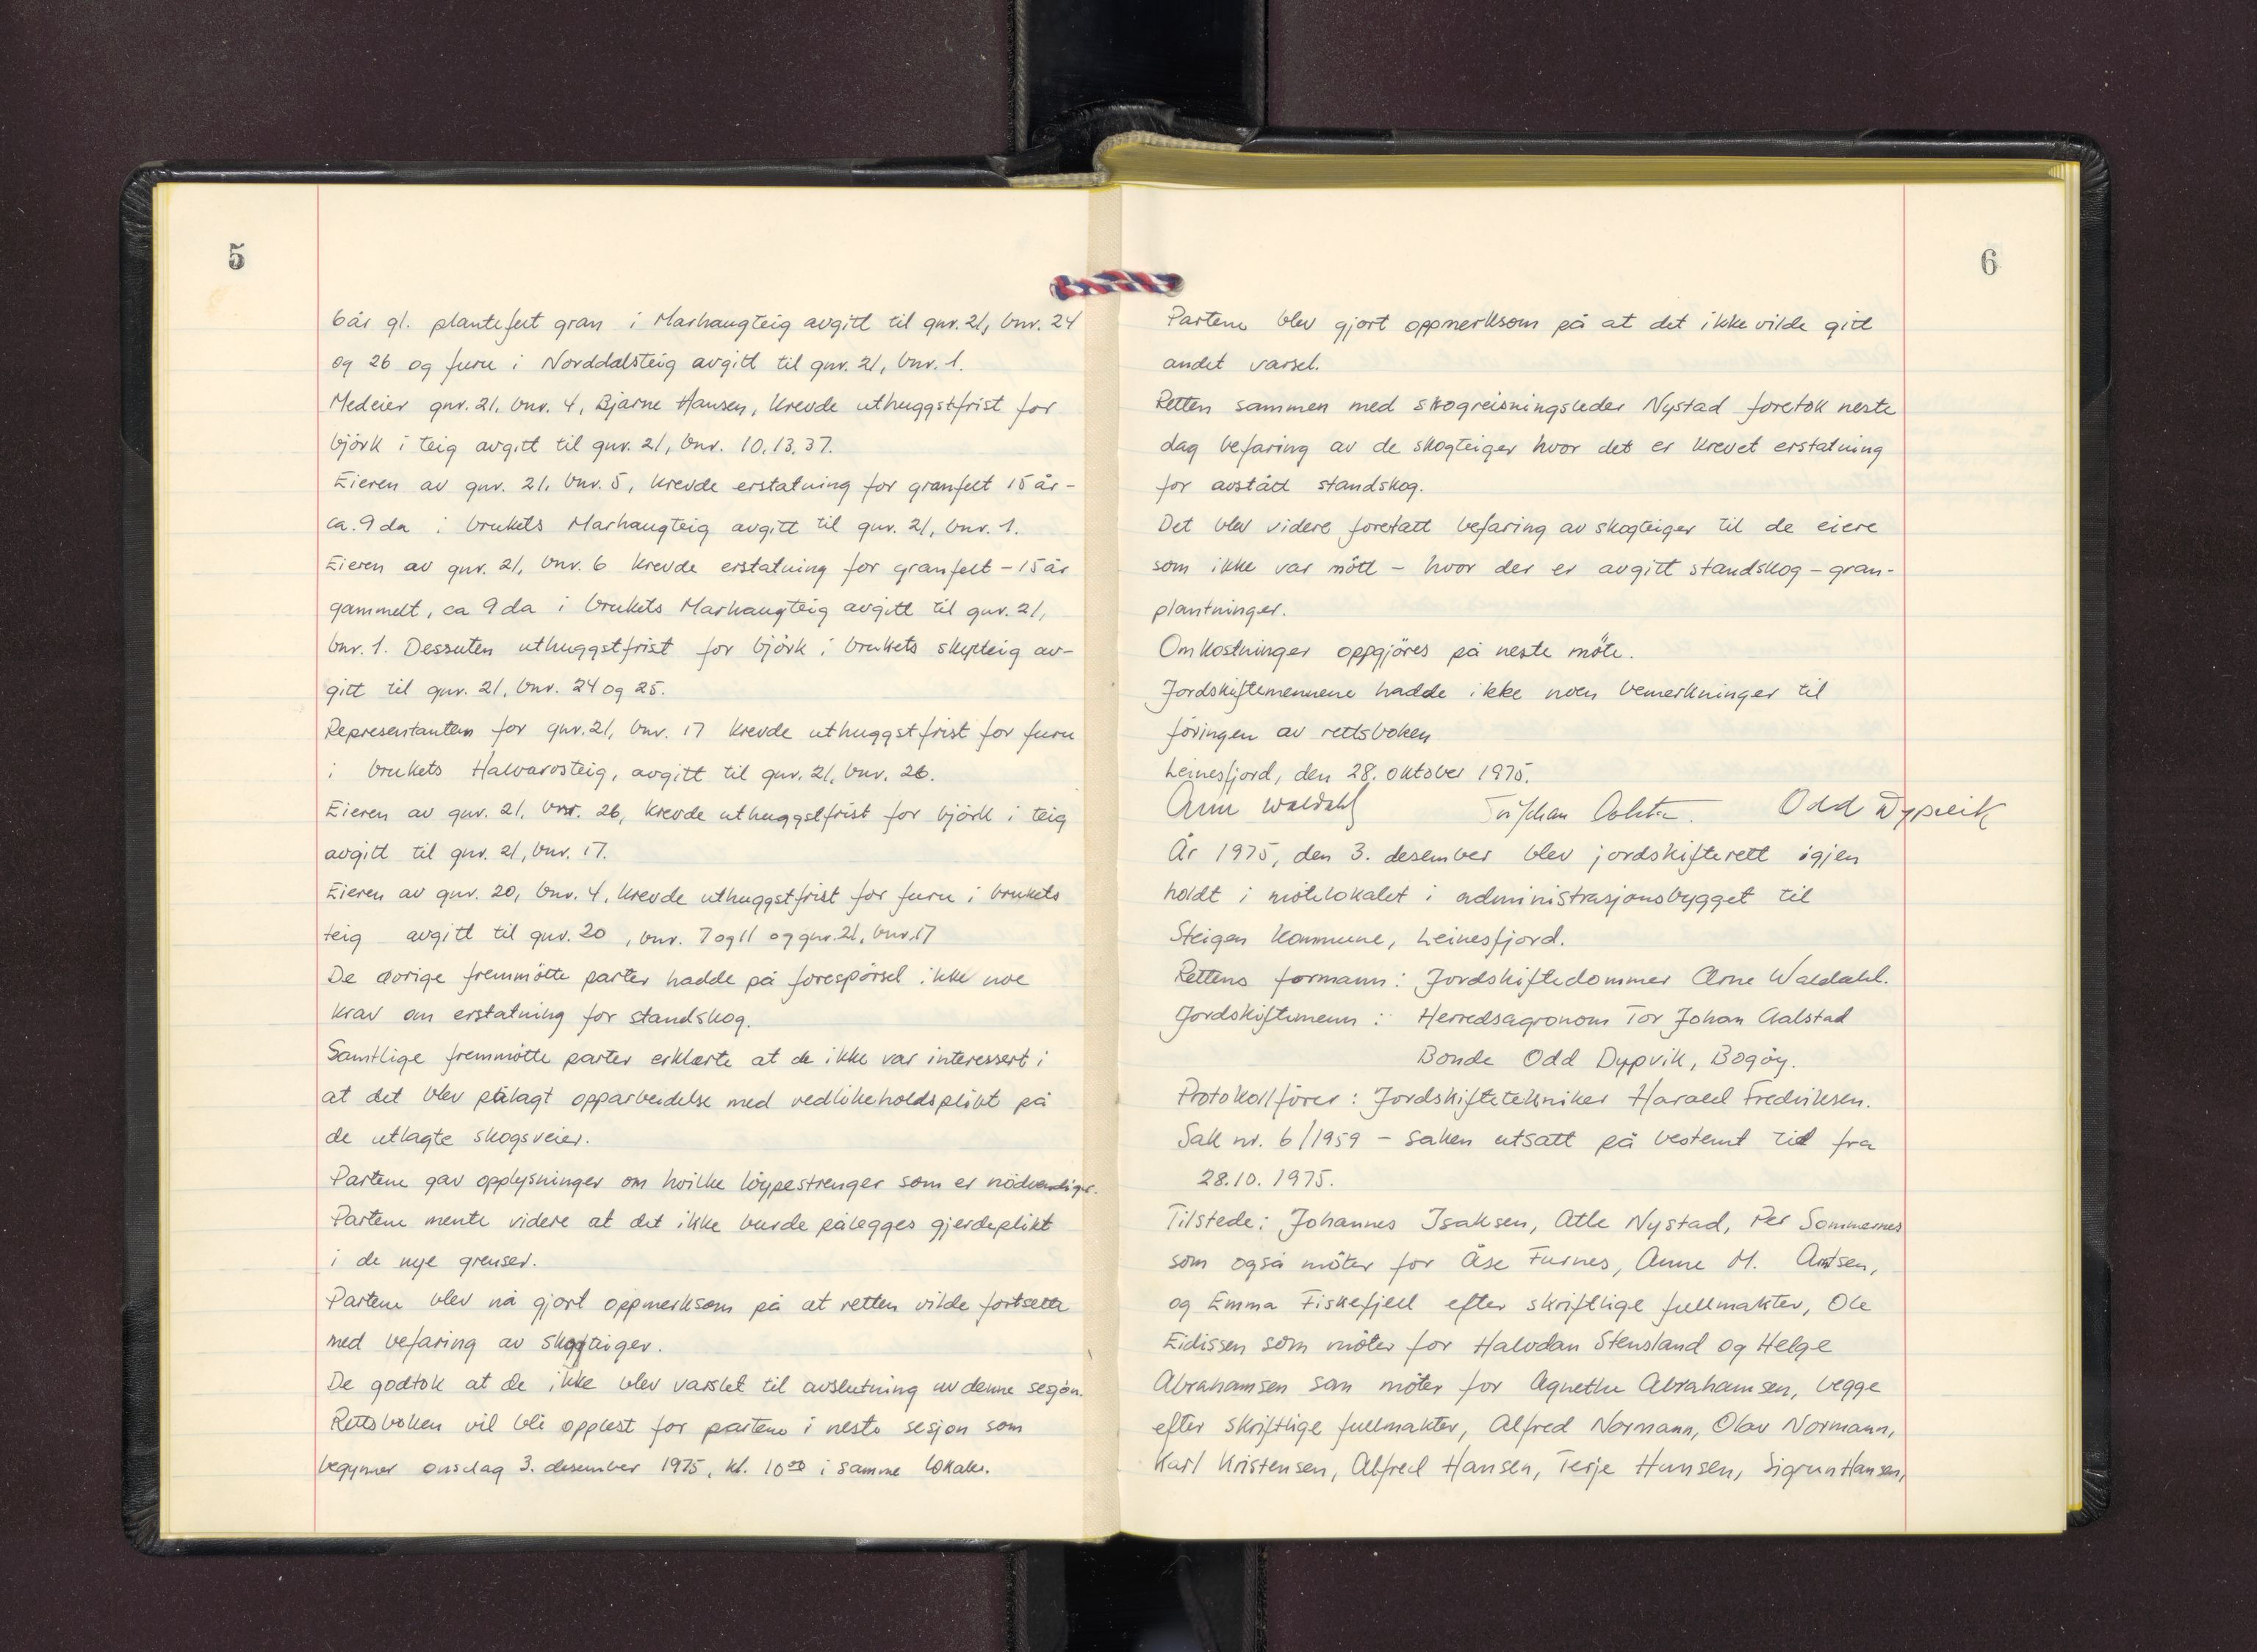 5
6 år gl. plantefelt gran i Marhaugteig avgitt til gnr. 21, bnr. 24
og 26 og furu i Norddalsteig avgitt til gnr. 21, bnr. 1.
Medeier gnr. 21, bnr. 4, Bjarne Hansen, krevde uthuggstfrist for
björk i teig avgitt til gnr. 21, bnr. 10, 13, 37.
Eieren av gnr. 21, bnr. 5, krevde erstatning for granfelt 15 år -
ca. 9 da i brukets Marhaugteig avgitt til gnr. 21, bnr. 1.
Eieren av gnr. 21, bnr. 6 krevde erstatning for granfelt - 15 år
gammelt, ca 9 da i brukets Marhaugteig avgitt til gnr. 21,
bnr. 1. Dessuten uthuggstfrist for björk i brukets skytteig av-
gitt til gnr. 21, bnr. 24 og 25.
Representanten for gnr. 21, bnr. 17 krevde uthuggstfrist for furu
i brukets Halvarosteig, avgitt til gnr. 21, bnr. 26.
Eieren av gnr. 21, bnr. 26, krevde uthuggstfrist for björk i teig
avgitt til gnr. 21, bnr. 17.
Eieren av gnr. 20, bnr. 4, krevde uthuggstfrist for furu i brukets
teig avgitt til gnr. 20, bnr. 7 og 11 og gnr. 21, bnr. 17
De øvrige fremmötte parter hadde på forespörsel ikke noe
krav om erstatning for standskog.
Samtlige fremmötte parter erklærte at de ikke var interessert i
at det blev pålagt opparbeidelse med vedlikeholdsplikt på
de utlagte skogsveier.
Partene gav opplysninger om hvilke löypestrenger som er nödvendige.
Partene mente videre at det ikke burde pålegges gjerdeplikt
i de nye grenser.
Partene blev nå gjort oppmerksom på at retten vilde fortsette
med befaring av skogteiger.
De godtok at de ikke blev varslet til avslutning av denne sesjon.
Rettsboken vil bli opplest for partene i neste sesjon som
begynner onsdag 3. desember 1975, kl. 10⁰⁰ i samme lokaler.
6
Partene blev gjort oppmerksom på at det ikke vilde gitt
andet varsel.
Retten sammen med skogreisningsleder Nystad foretok neste
dag befaring av de skogteiger hvor det er krevet erstatning
for avstått standskog.
Det blev videre foretatt befaring av skogteiger til de eiere
som ikke var mött - hvor der er avgitt standskog - gran-
plantninger.
Omkostninger oppgjöres på neste möte.
Jordskiftemennene hadde ikke noen bemerkninger til
föringen av rettsboken
Leinesfjord, den 28. oktober 1975.
Arne Waldahl Odd Dypvik
År 1975, den 3. desember blev jordskifterett igjen
holdt i mötelokalet i administrasjonsbygget til
Steigen kommune, Leinesfjord.
Rettens formann: Jordskiftedommer Arne Waldahl.
Jordskiftemenn: Herredsagronom Tor Johan Aalstad
Bonde Odd Dypvik, Bogöy.
Protokollförer: Jordskiftetekniker Harald Fredriksen.
Sak nr. 6/1959 - saken utsatt på bestemt tid fra
28.10.1975.
Tilstede: Johannes Isaksen, Atle Nystad, Per Sommernes
som også möter for Åse Furnes, Anne M. Arntsen,
og Emma Fiskefjell efter skriftlige fullmakter, Ole
Eidissen som möter for Halvdan Stensland og Helge
Abrahamsen som möter for Agnethe Abrahamsen, begge
efter skriftlige fullmakter, Alfred Normann, Olav Normann,
Karl Kristensen, Alfred Hansen, Terje Hansen, Sigrun Hansen,